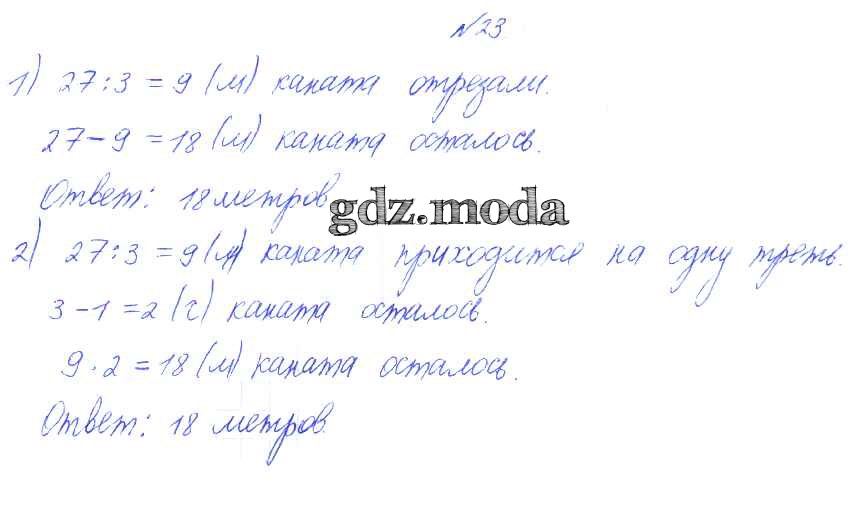 №23.
1) 27:3=9 (м) каната отрезали.
27-9=18 (м) каната осталось.
Ответ: 18 метров
gdz.moda
2) 27:3=9 (м) каната приходится на одну треть.
3-1=2 (ч) каната осталось.
9·2=18 (м) каната осталось.
Ответ: 18 метров.